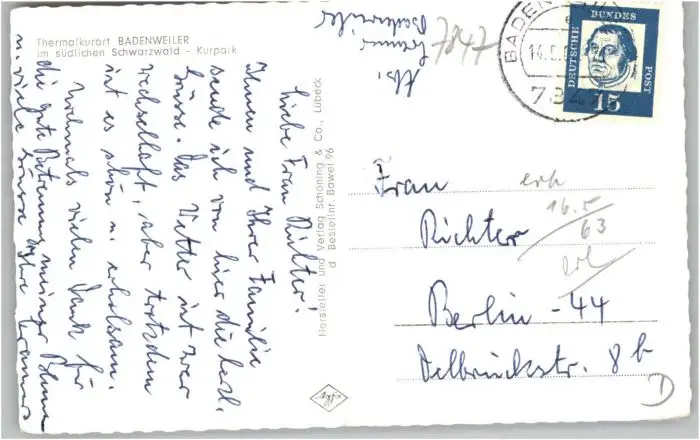 Thermalkurort BADENWEILER
im südlichen Schwarzwald - Kurpark
Liebe Frau Richter!
Ihnen und Ihrer Familie
sende ich von hier die herzl.
Grüsse. Das Wetter ist zwar
wechselhaft, aber trotzdem
ist es schön u. erholsam.
Nochmals vielen Dank für
die gute Betreuung meiner Blumen
u. viele Grüsse Ihre
Hersteller und Verlag Schöning & Co., Lübeck
d Bestellnr. Bawei 96
Abs.
Badenweiler
7847
BADENWEILER
14.5.
784
DEUTSCHE BUNDESPOST
15
Frau
Richter
Berlin - 44
Delbrückstr. 8 b
erh
16.5
63
erl
D